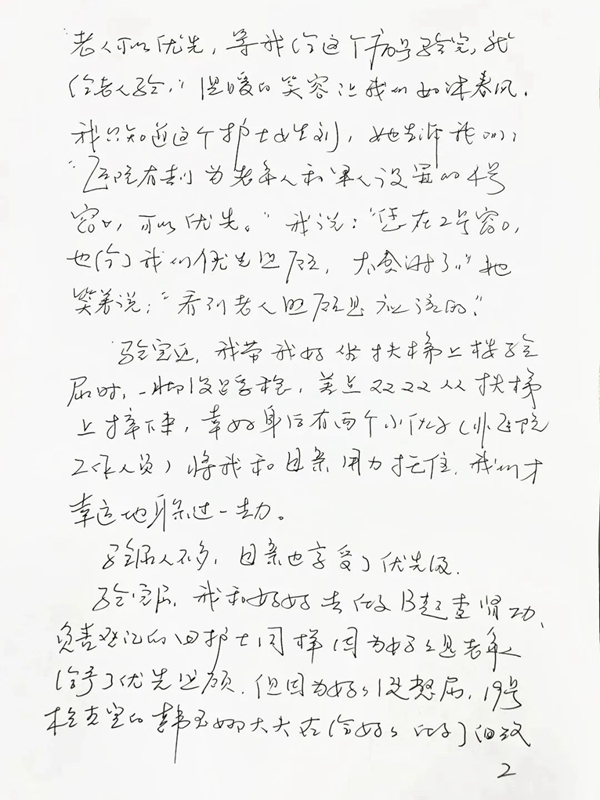 老人可以优先，等我给这个病号验完，就
给老人验，”温暖的笑容让我们如沐春风。
我只知道这个护士姓刘，她告诉我们，
“医院有专门为老年人和军人设置的4号
窗口，可以优先。”我说：“您在2号窗口，
也给了我们优先照顾，太感谢了。”她
笑着说：“看到老人照顾是应该的。”
验完血，我带我妈坐扶梯上楼验
尿时，一脚没踩稳，差点从扶梯
上摔下来，幸好身后有两个小伙子（非医院
工作人员）将我和母亲用力托住，我们才
幸运地躲过一劫。
验尿人不多，母亲也享受了优先级。
验完尿，我和妈妈去做B超查肾功，
负责登记的田护士同样因为妈妈是老年人
给予了优先照顾，但因为妈妈没憋尿，19号
检查室的韩玉娜大夫在给妈妈做了
2